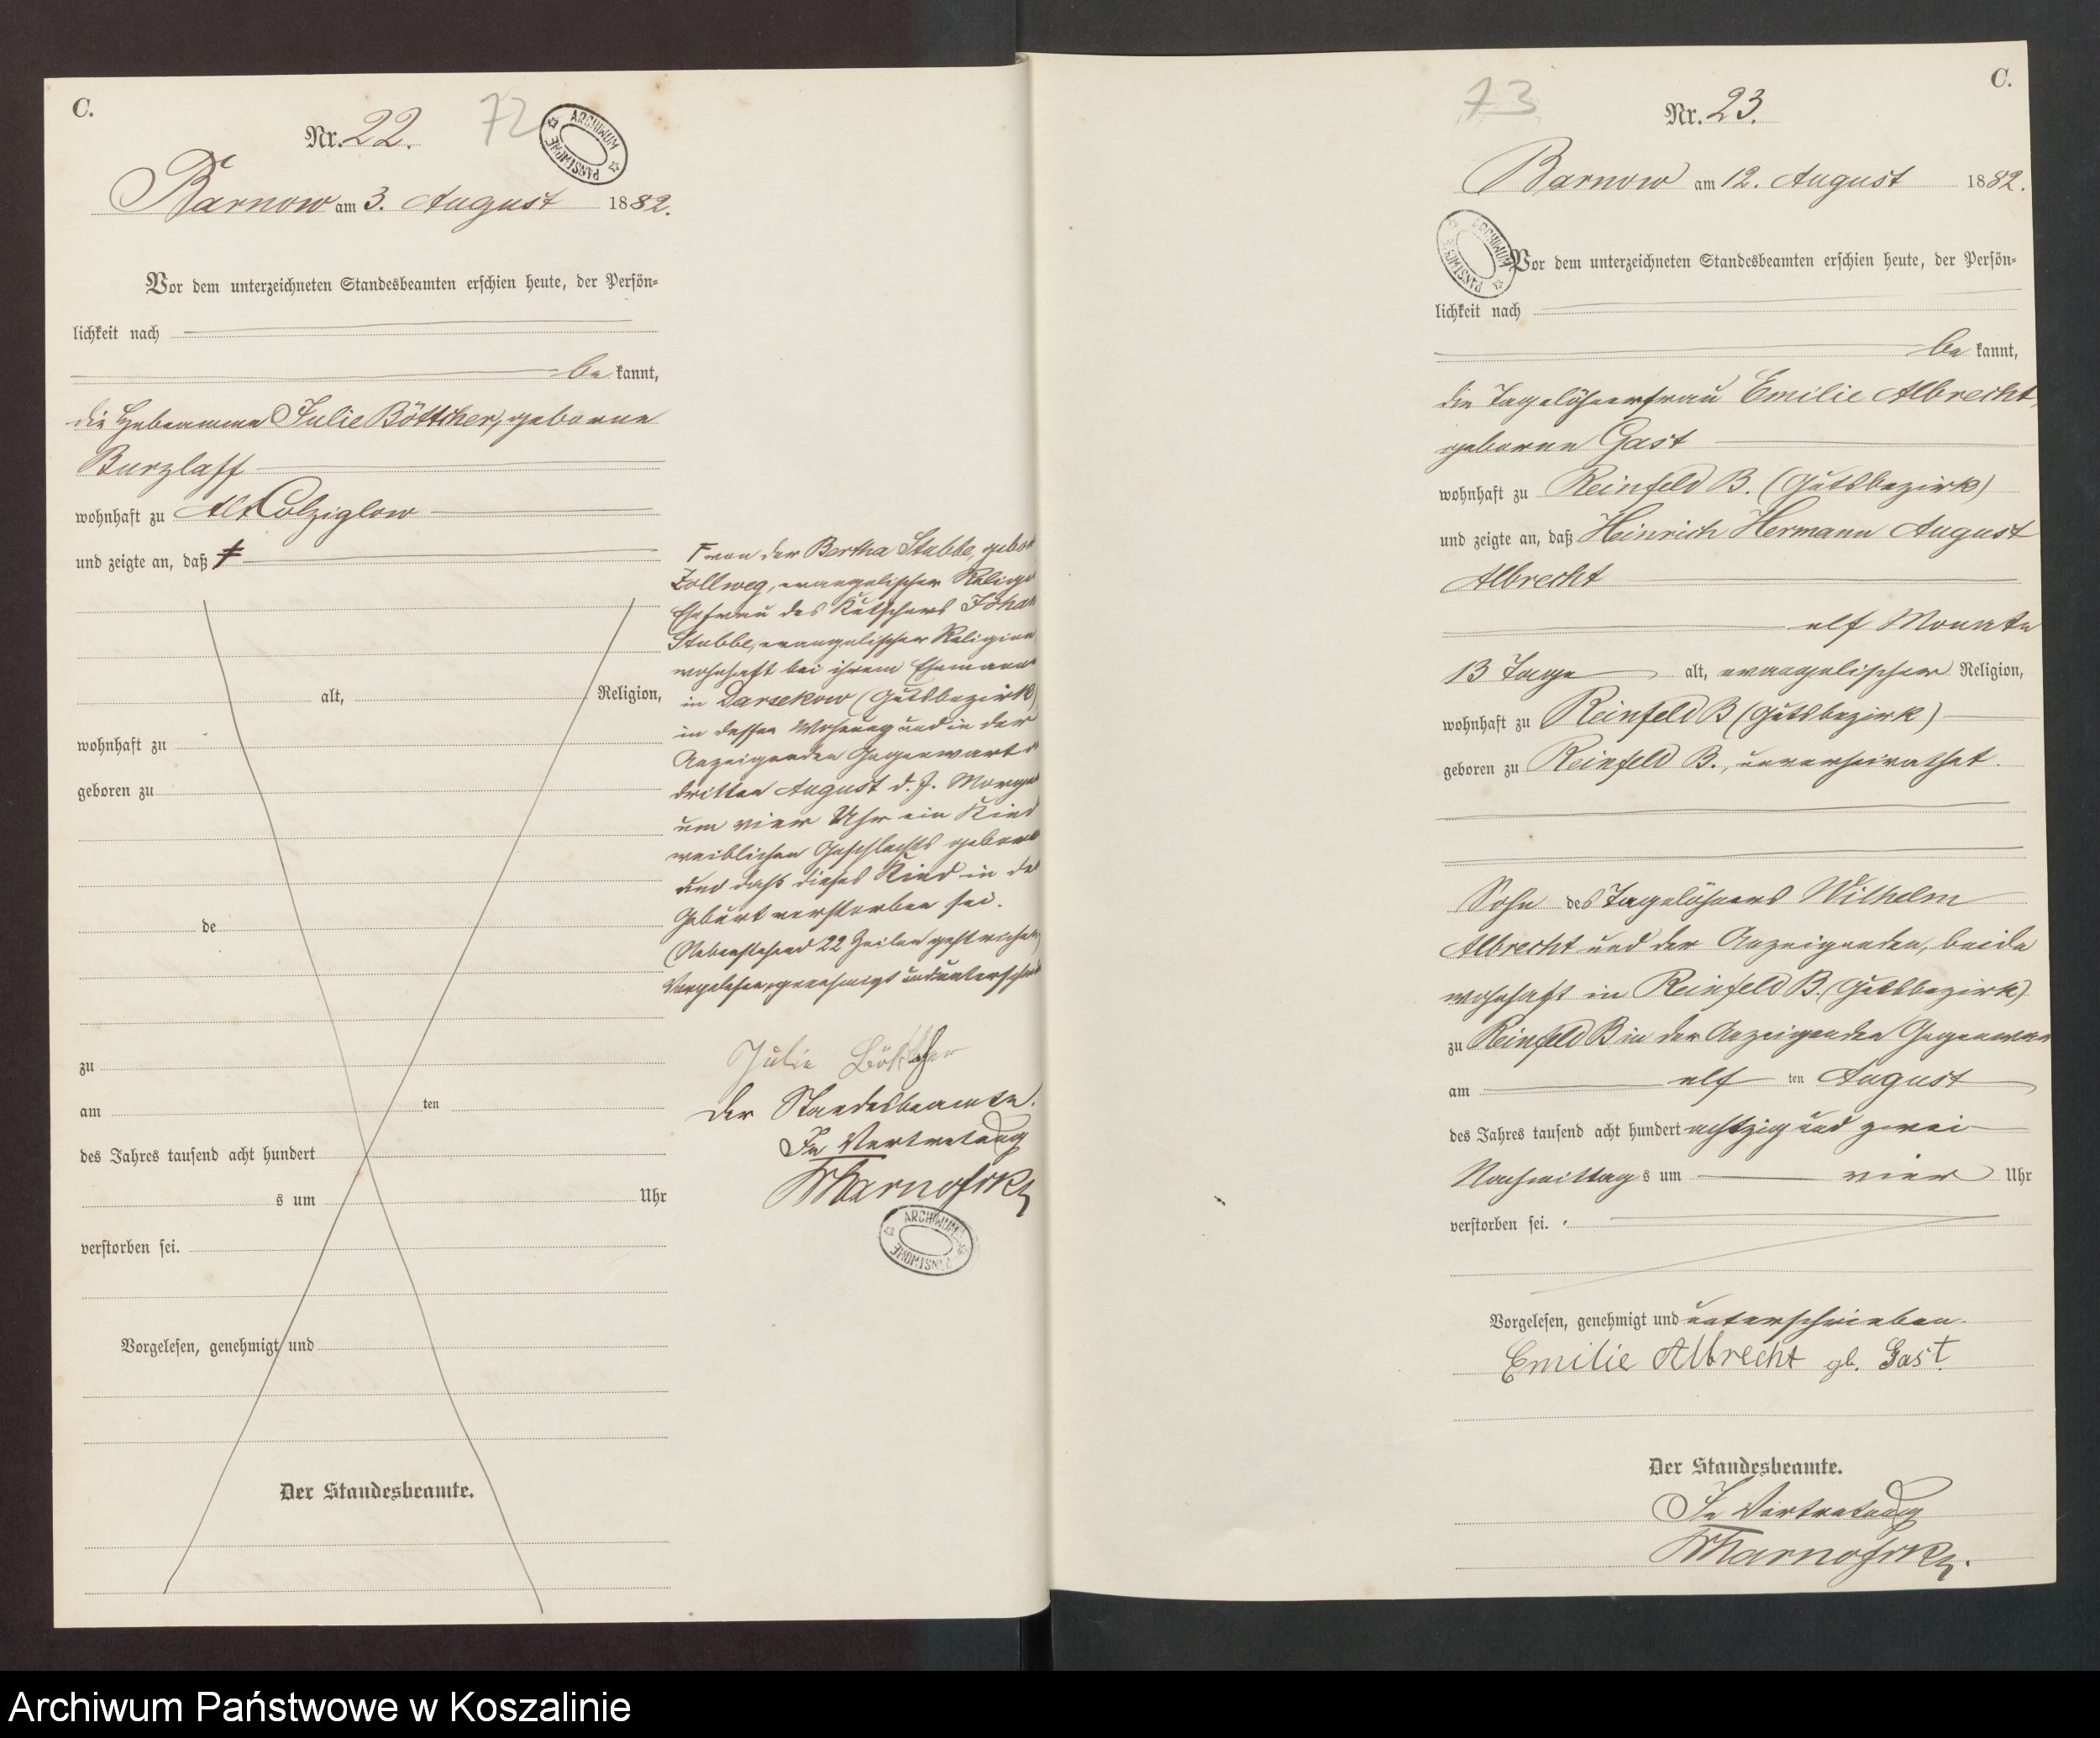 C.
Nr. 22.
72
ARCHIWUM PAŃSTWOWE
Barnow am 3. August 1882.
Vor dem unterzeichneten Standesbeamten erschien heute, der Persön-
lichkeit nach
be kannt,
die Hebeamme Julie Böttcher, geborne
Burzlaff
wohnhaft zu Alt Colziglow
und zeigte an, daß
alt, Religion,
wohnhaft zu
geboren zu
de
zu
am ten
des Jahres tausend acht hundert
s um Uhr
verstorben sei.
Vorgelesen, genehmigt und
Der Standesbeamte.
von der Bertha Stubbe, gebor
Zollweg, evangelischer Religi
Ehefrau des Kutschers Johan
Stubbe, evangelischer Religion
wohnhaft bei ihrem Ehemanne
in Darsekow (Gutsbezirk)
in dessen Wohnung und in der
Anzeigenden Gegenwart a
dritten August d. J. Morge
um vier Uhr ein Kind
weiblichen Geschlechts gebore
und daß dieses Kind in de
Geburt verstorben sei.
Nebenstehend 22 Zeilen gestrichen
Vorgelesen, genehmigt und unterschrie
Julie Böttcher
Der Standesbeamte.
In Vertretung
ARCHIWUM PAŃSTWOWE
73
C.
Nr. 23.
Barnow am 12. August 1882.
ARCHIWUM PAŃSTWOWE
Vor dem unterzeichneten Standesbeamten erschien heute, der Persön-
lichkeit nach
be kannt,
die Tagelöhnerfrau Emilie Albrecht,
geborne Gast
wohnhaft zu Reinfeld B. (Gutsbezirk)
und zeigte an, daß Heinrich Hermann August
Albrecht
elf Monate
13 Tage alt, evangelischer Religion,
wohnhaft zu Reinfeld B (Gutsbezirk)
geboren zu Reinfeld B., unverheirathet.
Sohn des Tagelöhners Wilhelm
Albrecht und der Anzeigenden, beide
wohnhaft in Reinfeld B. (Gutsbezirk)
zu Reinfeld B in der Anzeigenden Gegenwar
am elf ten August
des Jahres tausend acht hundert achtzig und zwei
Nachmittag s um vier Uhr
verstorben sei.
Vorgelesen, genehmigt und unterschrieben.
Emilie Albrecht gb. Gast
Der Standesbeamte.
In Vertretung
Archiwum Państwowe w Koszalinie